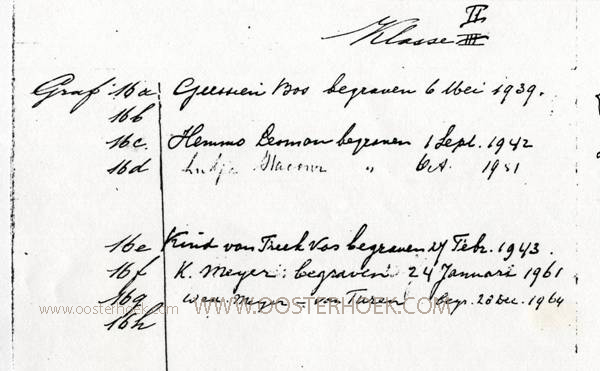 Klasse II III
Graf 16a Geessien Bos begraven 6 Mei 1939.
16b
16c. Hemmo begraven 1 Sept. 1942
16d " Oct. 1951
16e Kind van Treek Vos begraven 24 Febr. 1943.
16f K. Meyer begraven 24 Januari 1961
16g Wed. Meyer - van Turen begr. 20 Dec. 1964
16h
www.oosterhoek.com WWW.OOSTERHOEK.COM www.oosterhoek.com